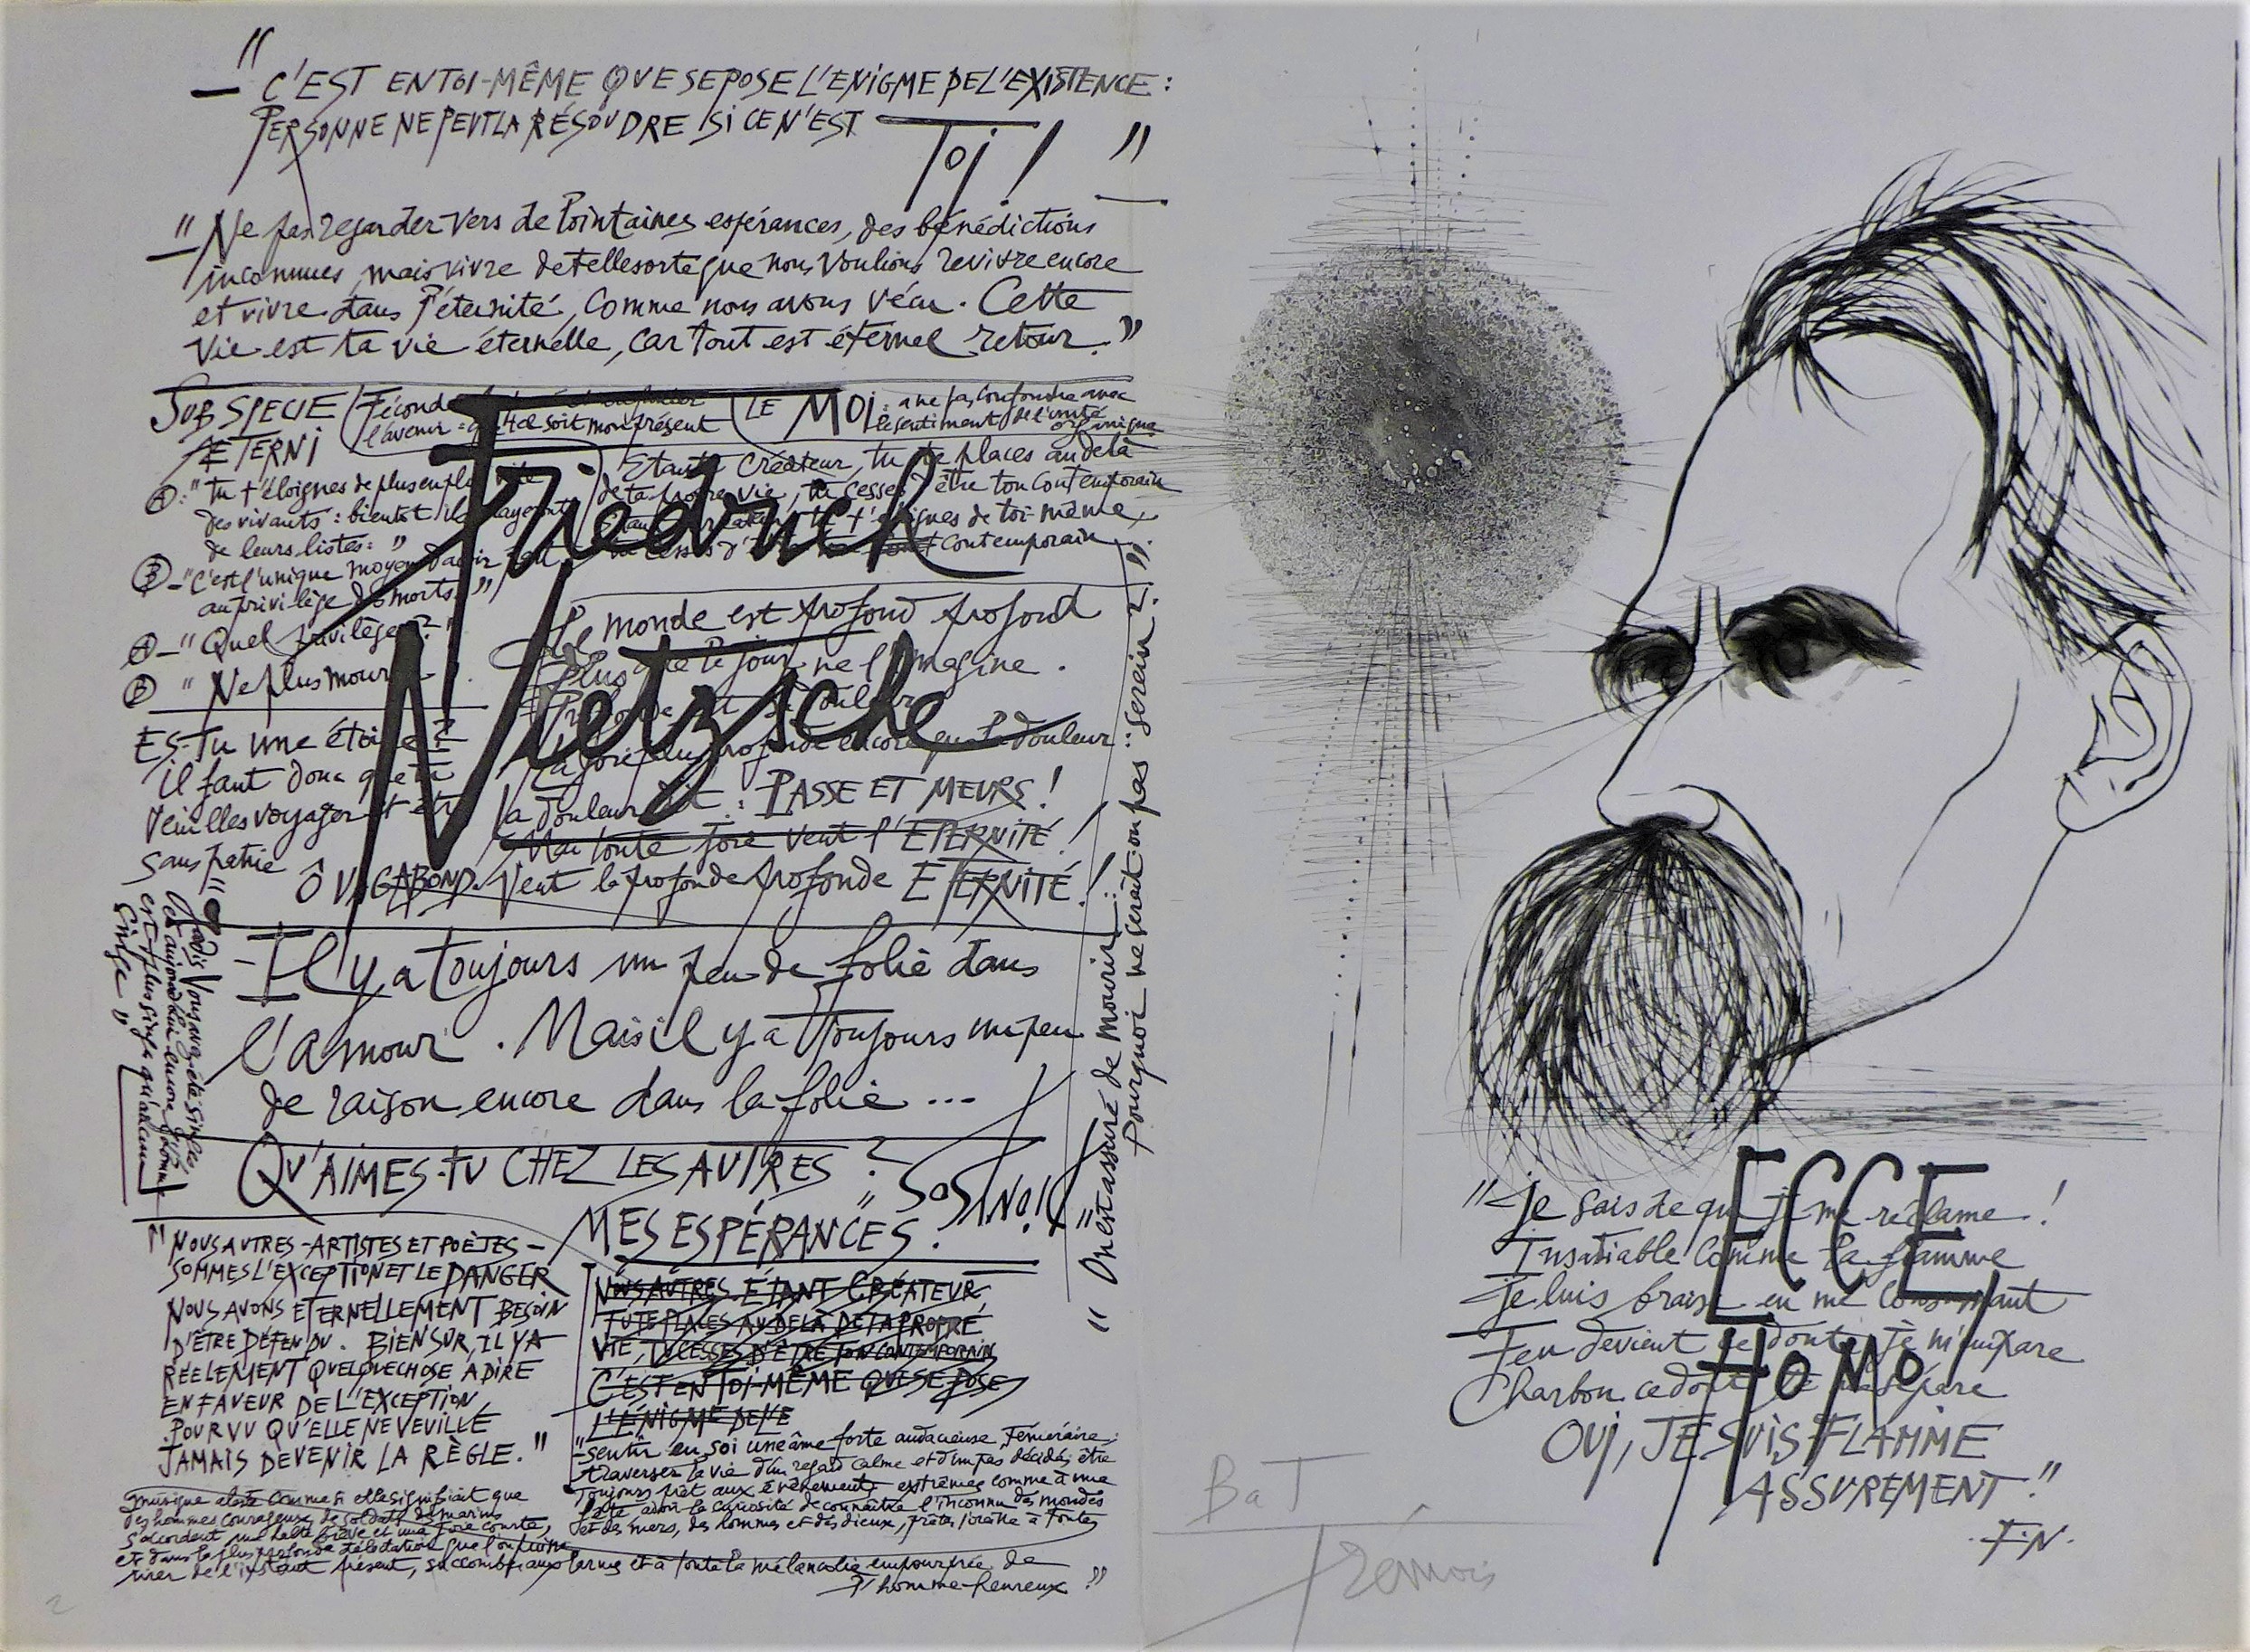 "
— C'EST EN TOI-MÊME QUE SE POSE L'ENIGME DE L'EXISTENCE :
PERSONNE NE PEUT LA RÉSOUDRE SI CE N'EST
TOI ! " —
"— Ne pas regarder vers de lointaines espérances, des bénédictions
inconnues, mais vivre de telle sorte que nous voulions revivre encore
et vivre dans l'éternité, comme nous avons vécu. Cette
vie est ta vie éternelle, car tout est éternel retour. "
SUB SPECIE
ÆTERNI
l'avenir : soit mon présent
LE MOI : a ne pas confondre avec
le sentiment de l'unité
organique
A : " Tu t'éloignes de plus en plus
des vivants : bientôt
de leurs listes : "
B — " C'est l'unique moyen
au privilège des morts. "
A — " Quel privilège ? "
B " Ne plus mourir
Etant Créateur, tu te places au delà
de ta propre vie, tu cesses d'être ton contemporain
de toi-même,
contemporain
Friedrich
Nietzsche
Le monde est profond profond
Plus que le jour ne l'imagine.
La joie plus profonde encore que la douleur
la douleur dit : PASSE ET MEURS !
Mai toute joie veut l'ETERNITÉ !
Veut la profonde profonde ETERNITÉ !
ES-Tu une étoile ?
Il faut donc que tu
veuilles voyager et être
sans patrie
Ô VAGABOND.
" Jadis vous avez été singes
et aujourd'hui encore l'homme
est plus singe qu'aucun
singe "
— Il y a toujours un peu de folie dans
l'amour. Mais il y a toujours un peu
de raison encore dans la folie ...
" On est assuré de mourir :
Pourquoi ne serait-on pas serein ? "
QU'AIMES-TU CHEZ LES AUTRES ?
MES ESPÉRANCES. "
" NOUS AUTRES - ARTISTES ET POÈTES -
SOMMES L'EXCEPTION ET LE DANGER
NOUS AVONS ETERNELLEMENT BESOIN
D'ÊTRE DÉFENDU. BIEN SUR, IL Y A
RÉELEMENT QUELQUE CHOSE A DIRE
EN FAVEUR DE L'EXCEPTION
POURVU QU'ELLE NE VEUILLE
JAMAIS DEVENIR LA RÈGLE. "
NOUS AUTRES. ÉTANT CRÉATEUR,
TU TE PLACES AU DELÀ DE TA PROPRE
VIE, TU CESSES D'ÊTRE TON CONTEMPORAIN
C'EST EN TOI-MÊME QUE SE POSE
L'ÉNIGME DE L'E
" Sentir en soi une âme forte audacieuse, téméraire ;
traverser la vie d'un regard calme et d'un pas décidé, être
toujours prêt aux évènements extrêmes comme à une
fête avoir la curiosité de connaître l'inconnu des mondes
et des mers, des hommes et des dieux, prêter l'oreille à toutes
musique alerte comme si elle signifiait que
des hommes courageux, de soldats de marins
s'accordent une halte brève et une joie courte,
et dans la plus profonde délectation que l'on puisse
tirer de l'instant présent, succomber aux larmes et à toute la mélancolie empourprée de
l'homme heureux "
" Je sais de qui je me réclame !
Insatiable comme la flamme
Je luis braise en me consumant
Feu devient ce dont je m'empare
Charbon ce dont je me sépare
OUI, JE SUIS FLAMME
ASSUREMENT "
F.N.
ECCE
HOMO
BaT
Trémois
2